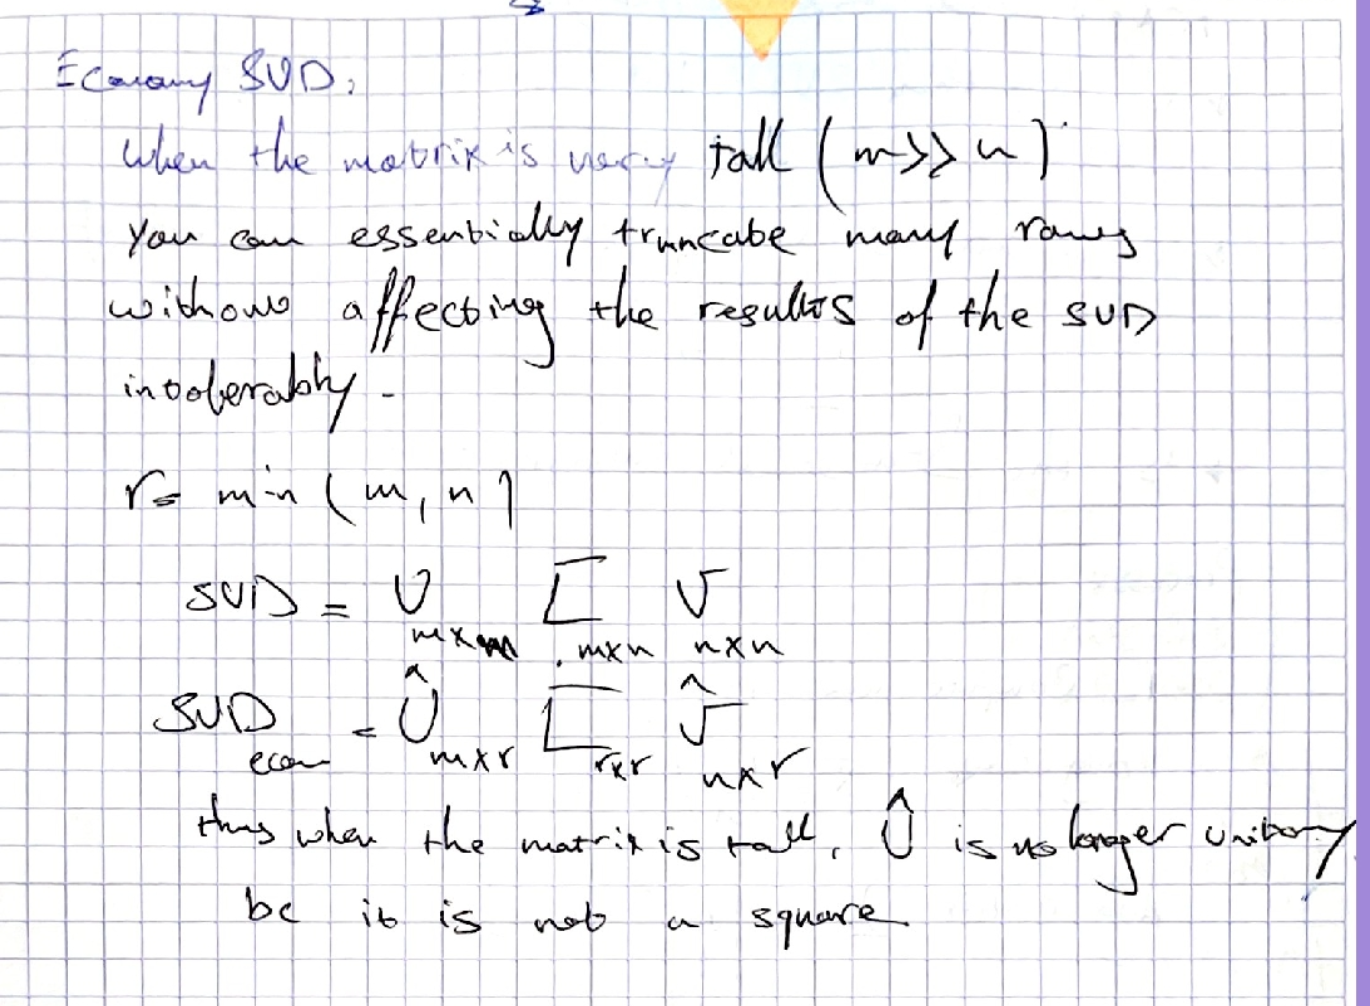 Economy SVD:
when the matrix is very tall (m>>n)
you can essentially truncate many rows
without affecting the results of the SVD
intolerably -
r= min (m, n)
SVD = U Σ V
mxm mxn nxn
SVD = Û Σ V̂
econ mxr rxr nxr
thus when the matrix is tall, Û is no longer unitary
bc it is not a square